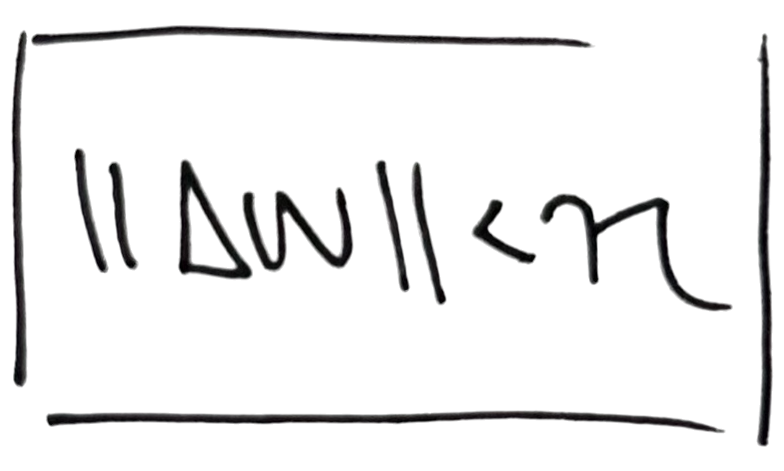 ||ΔW|| < η